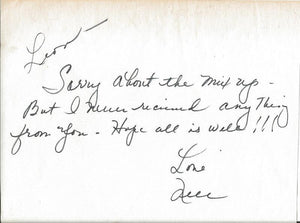 Leon -
Sorry about the mix up -
But I never received any Thing
from You - Hope all is well !!!
Love